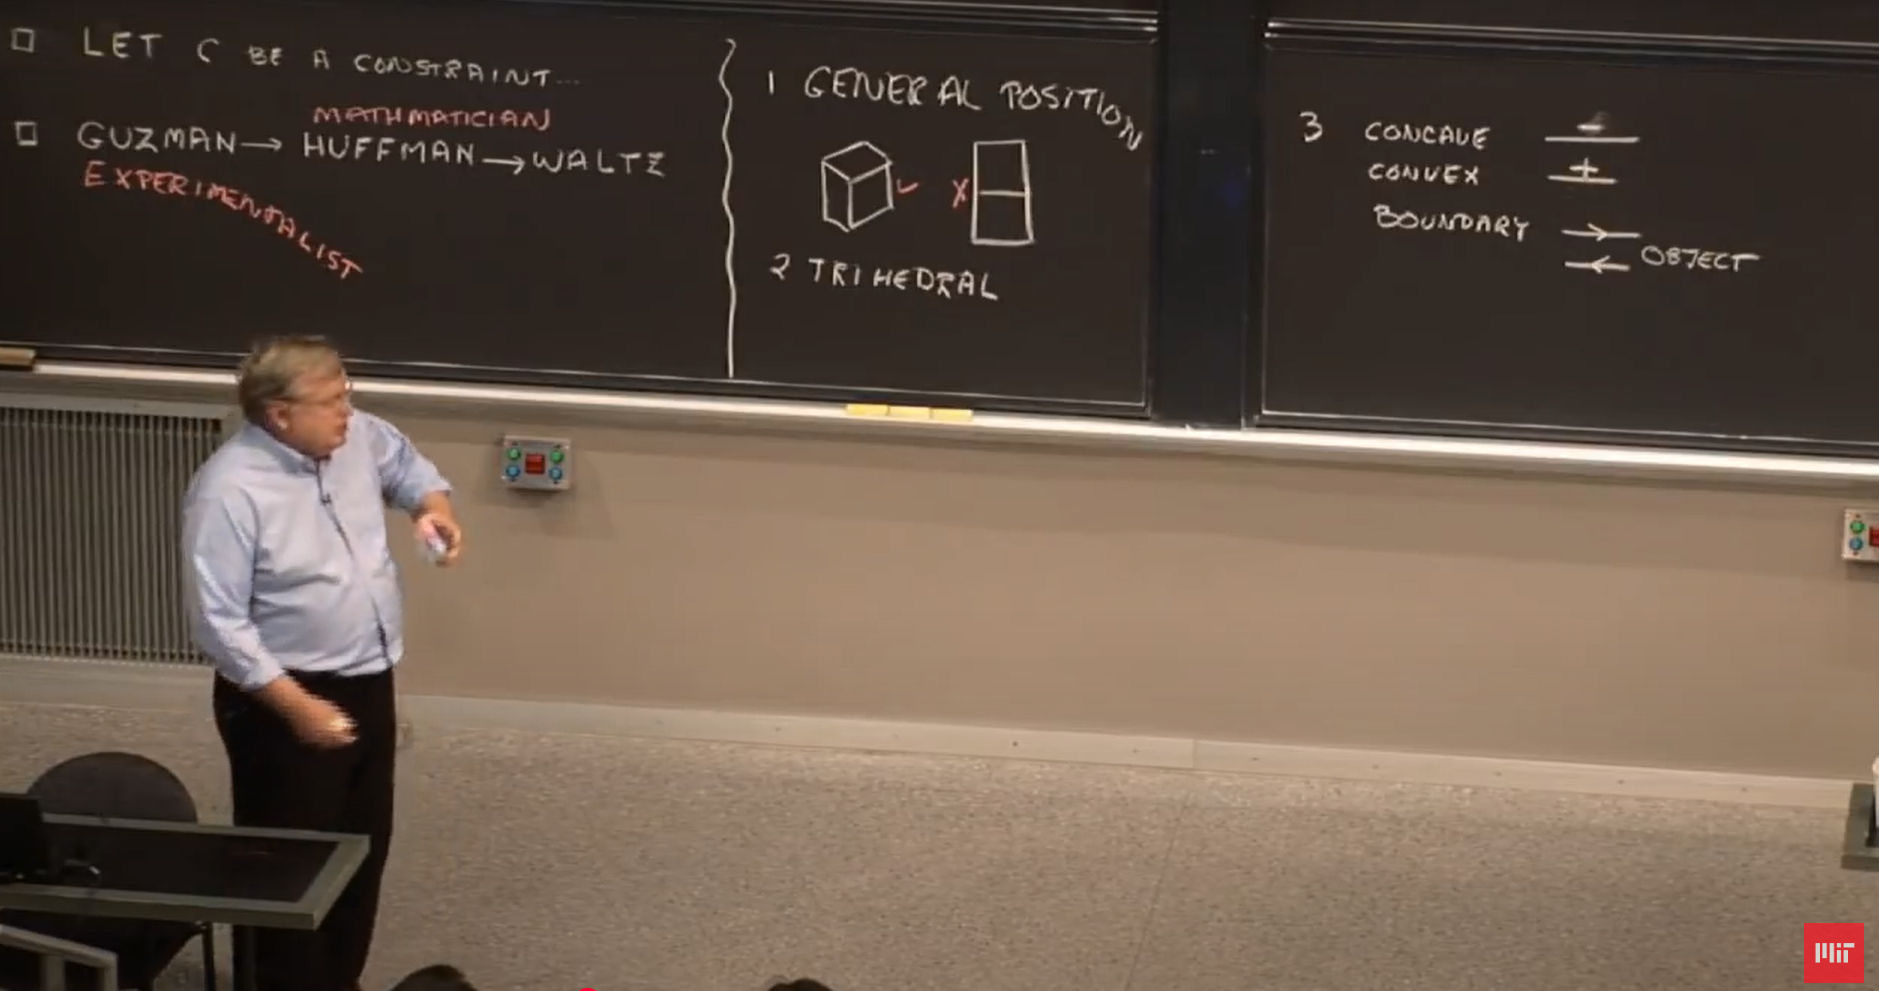 LET C BE A CONSTRAINT...
MATHMATICIAN
GUZMAN → HUFFMAN → WALTZ
EXPERIMENTALIST
1 GENERAL POSITION
✓ X
2 TRIHEDRAL
3 CONCAVE −
CONVEX +
BOUNDARY →
← OBJECT
MIT